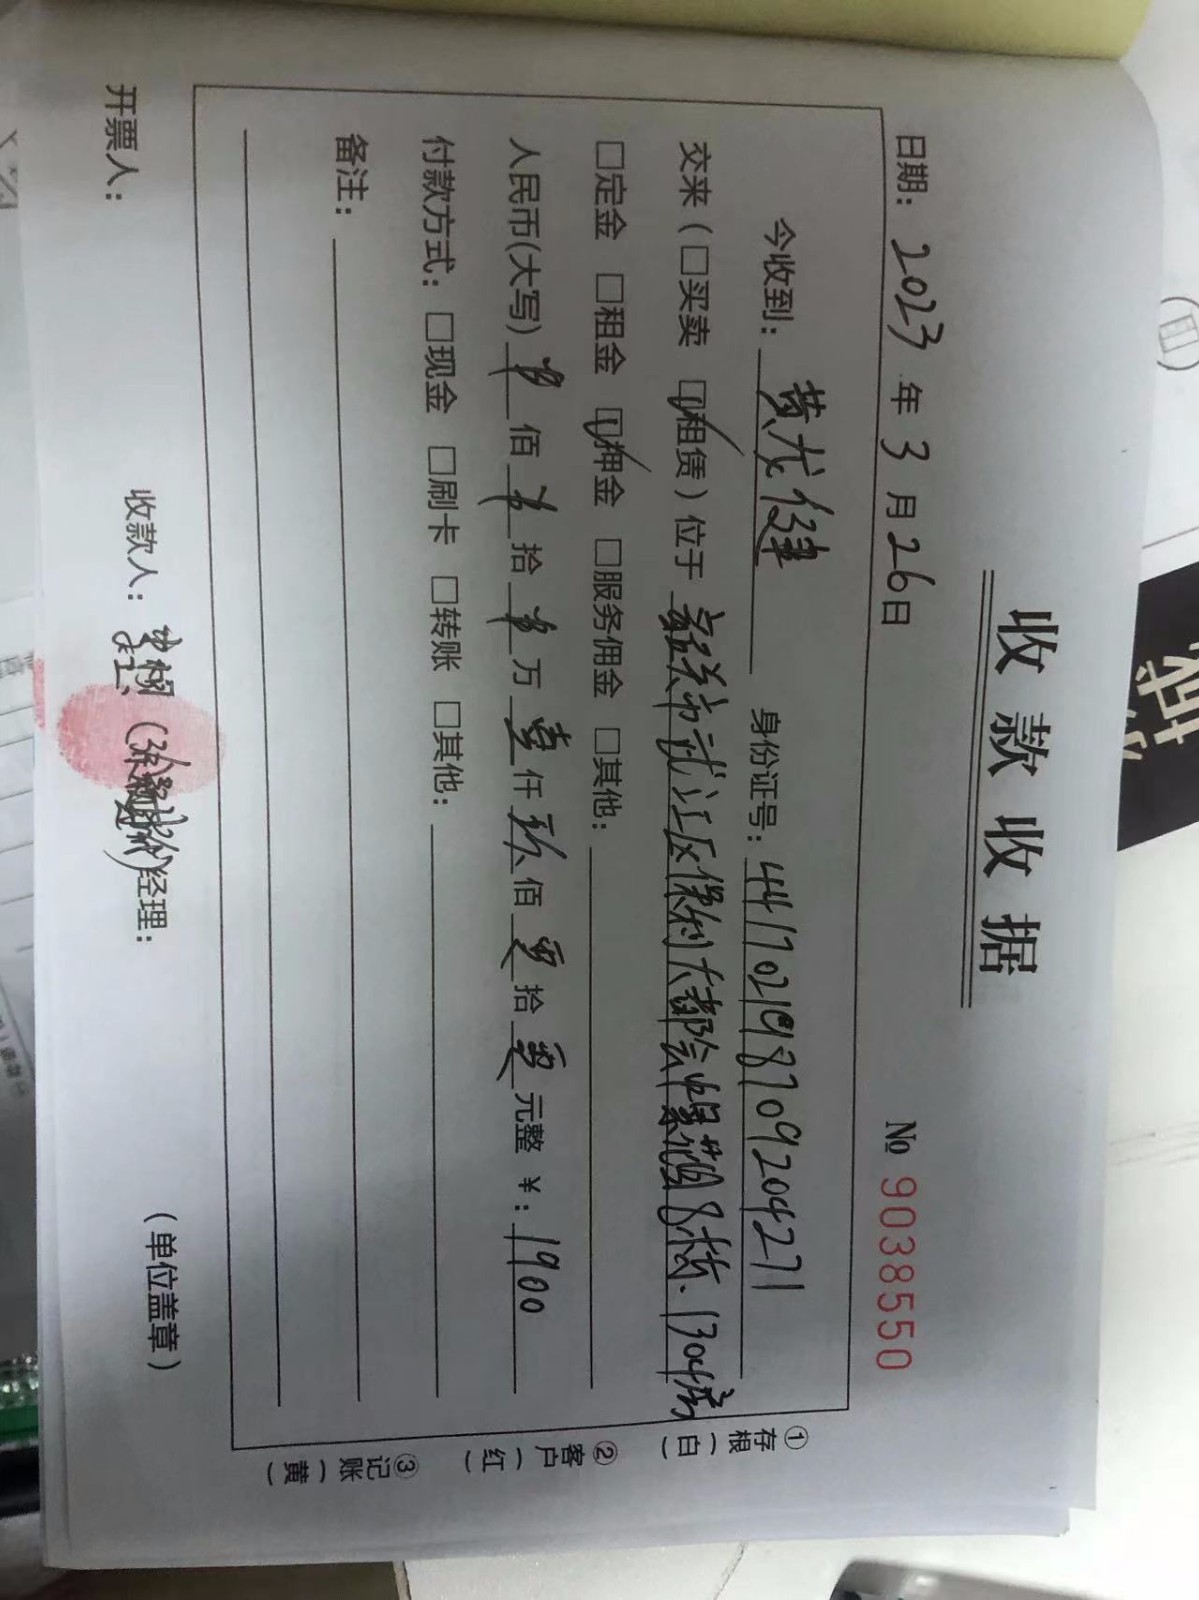 收款收据
№ 9038550
日期：2023年3月26日
今收到：黄龙健 身份证号：441702198709204271
交来（□买卖 ☑租赁）位于 韶关市武江区保利大都会 8栋、1304房
□定金 □租金 ☑押金 □服务佣金 □其他：
人民币(大写) 佰 拾 万 壹仟玖佰零拾零元整 ¥：1900
付款方式：□现金 □刷卡 □转账 □其他：
备注：
开票人： 收款人： 经理： （单位盖章）
①存根（白）
②客户（红）
③记账（黄）